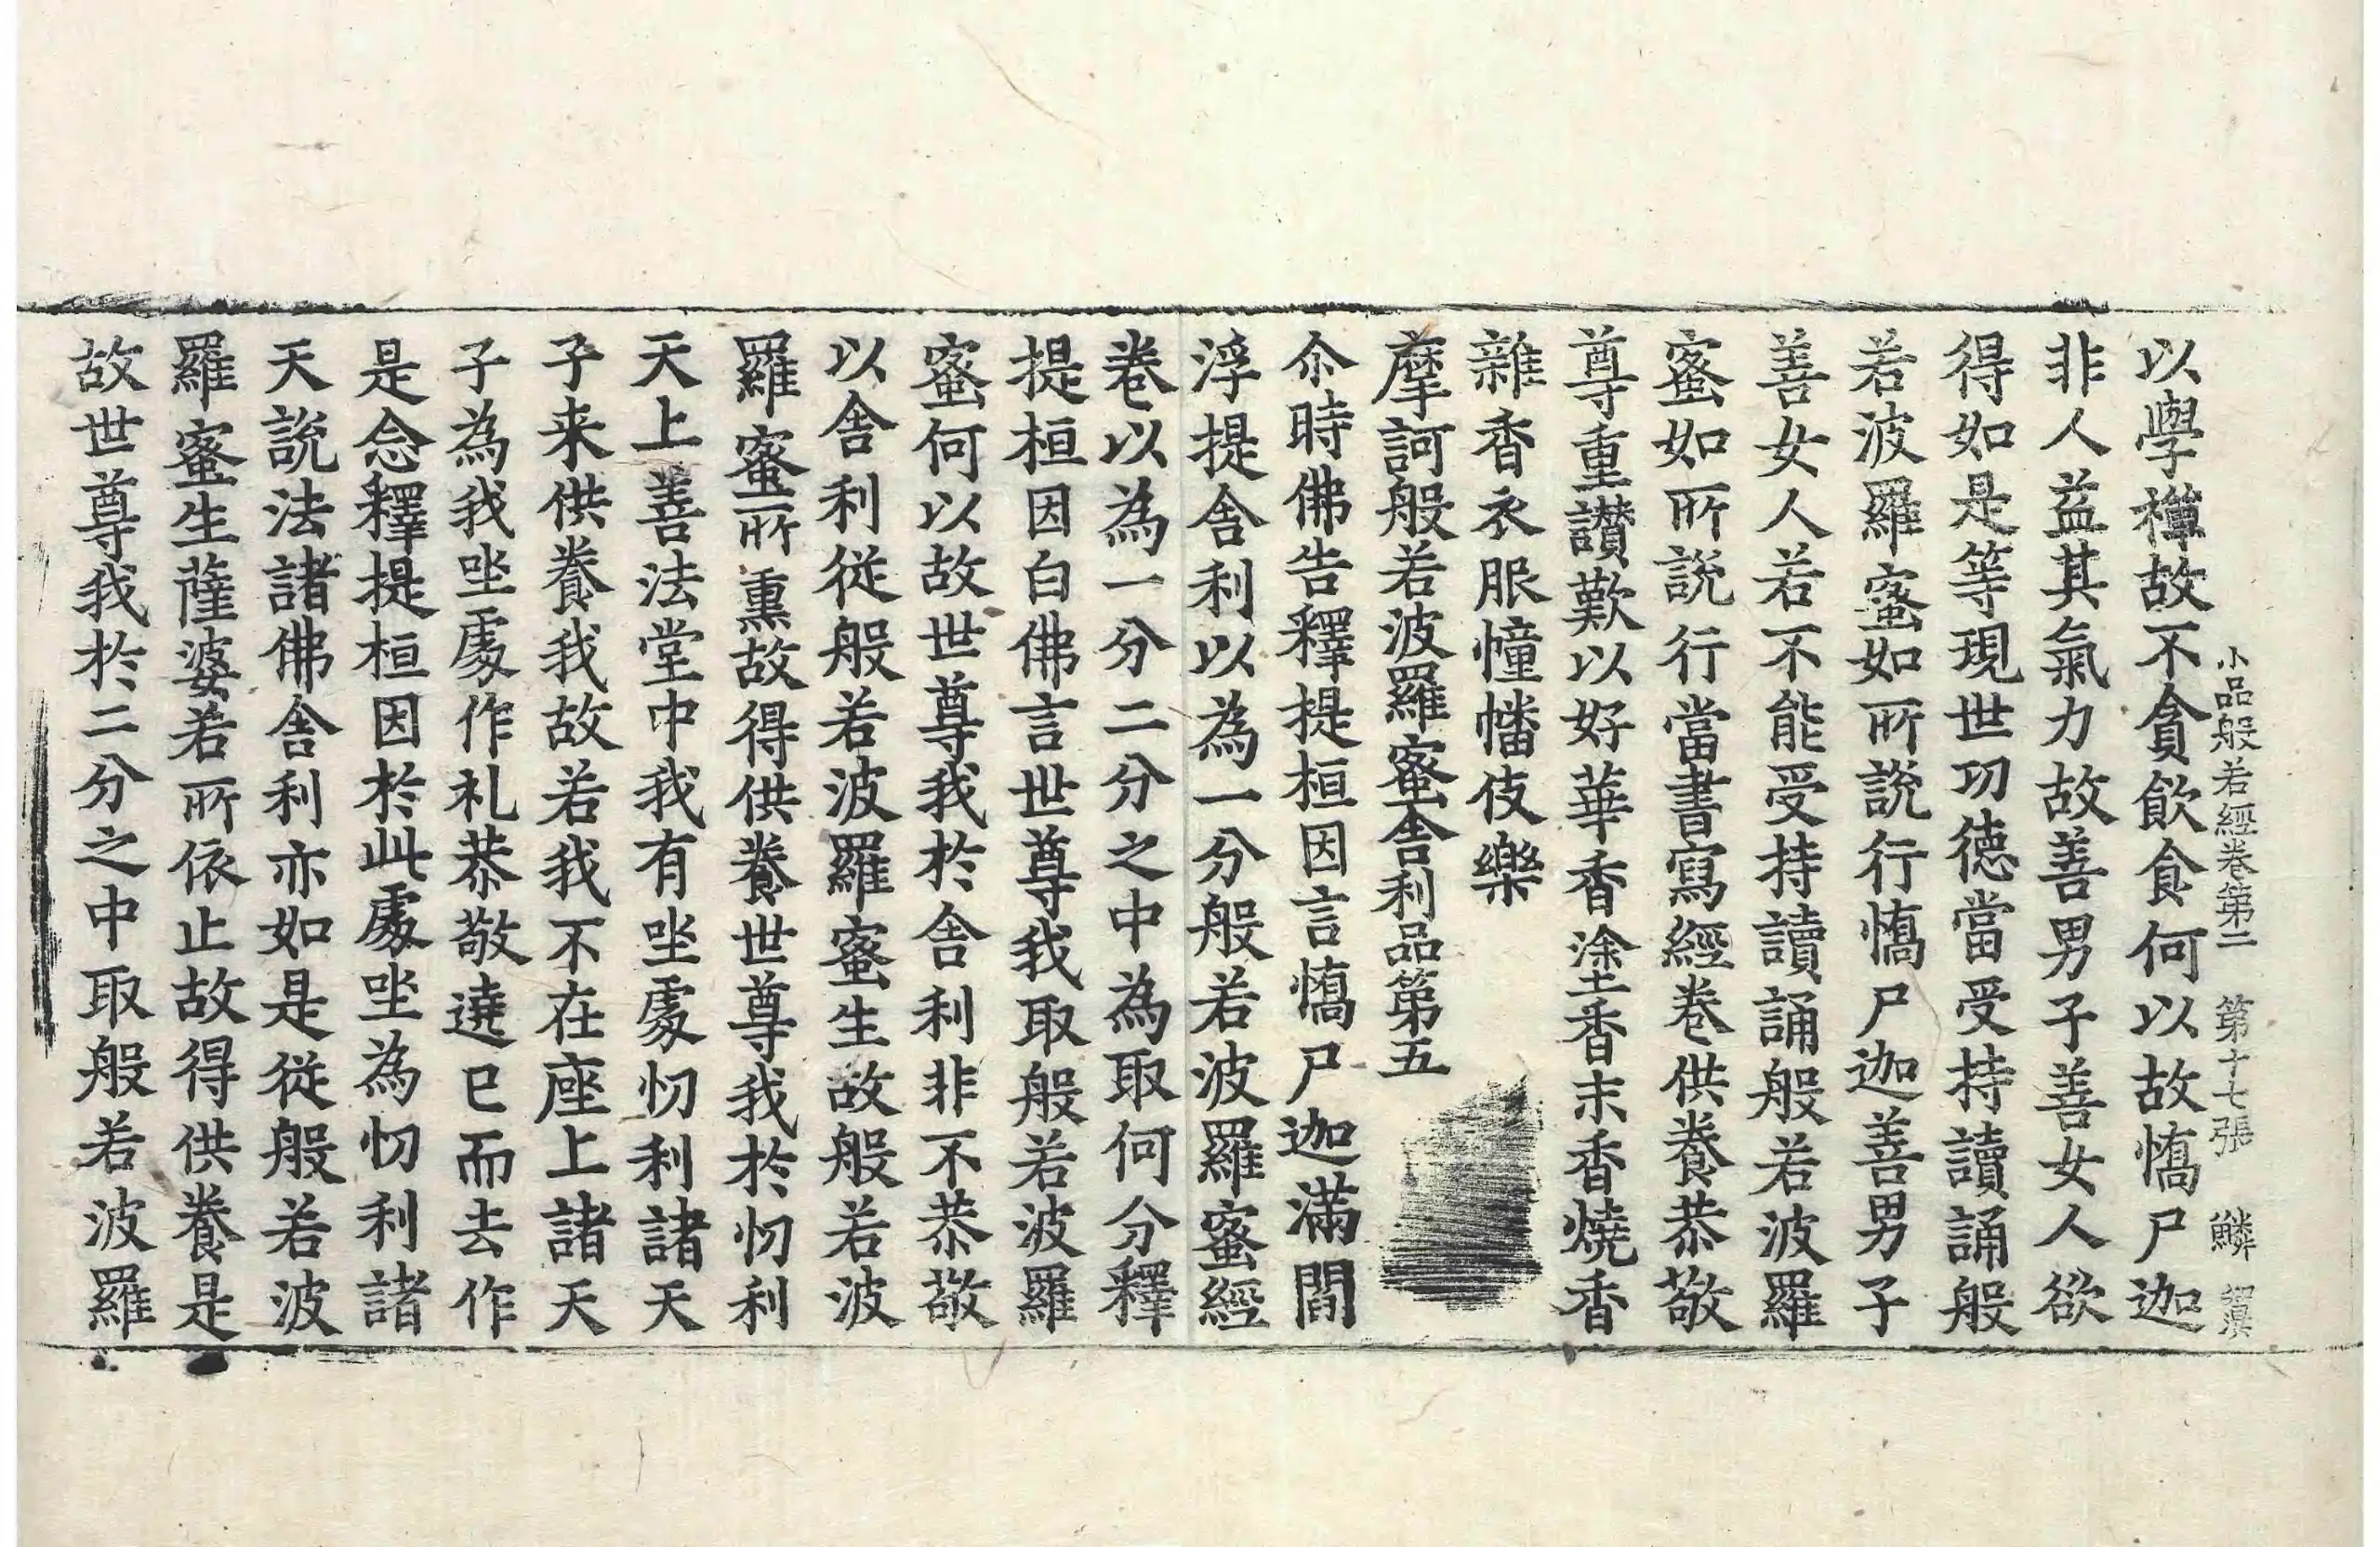 小品般若經卷第二 第十七張 鱗
以學禪故不貪飲食何以故憍尸迦
非人益其氣力故善男子善女人欲
得如是等現世功德當受持讀誦般
若波羅蜜如所說行憍尸迦善男子
善女人若不能受持讀誦般若波羅
蜜如所說行當書寫經卷供養恭敬
尊重讚歎以好華香塗香末香燒香
雜香衣服幢幡伎樂
摩訶般若波羅蜜舍利品第五
尒時佛告釋提桓因言憍尸迦滿閻
浮提舍利以為一分般若波羅蜜經
卷以為一分二分之中為取何分釋
提桓因白佛言世尊我取般若波羅
蜜何以故世尊我於舍利非不恭敬
以舍利從般若波羅蜜生故般若波
羅蜜所熏故得供養世尊我於忉利
天上善法堂中我有坐處忉利諸天
子来供養我故若我不在座上諸天
子為我坐處作礼恭敬遶已而去作
是念釋提桓因於此處坐為忉利諸
天說法諸佛舍利亦如是從般若波
羅蜜生薩婆若所依止故得供養是
故世尊我於二分之中取般若波羅